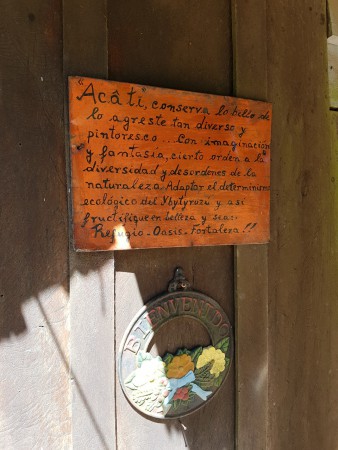 "Acâti, conserva lo bello de
lo agreste tan diverso y
pintoresco... Con imaginación
y fantasia, cierto orden a la
diversidad y desordenes de la
naturaleza. Adaptar el determinismo
ecológico del Ybytyruzú y así
fructifique en belleza y sea:
Refugio - Oasis - Fortaleza!!"
BIENVENIDO